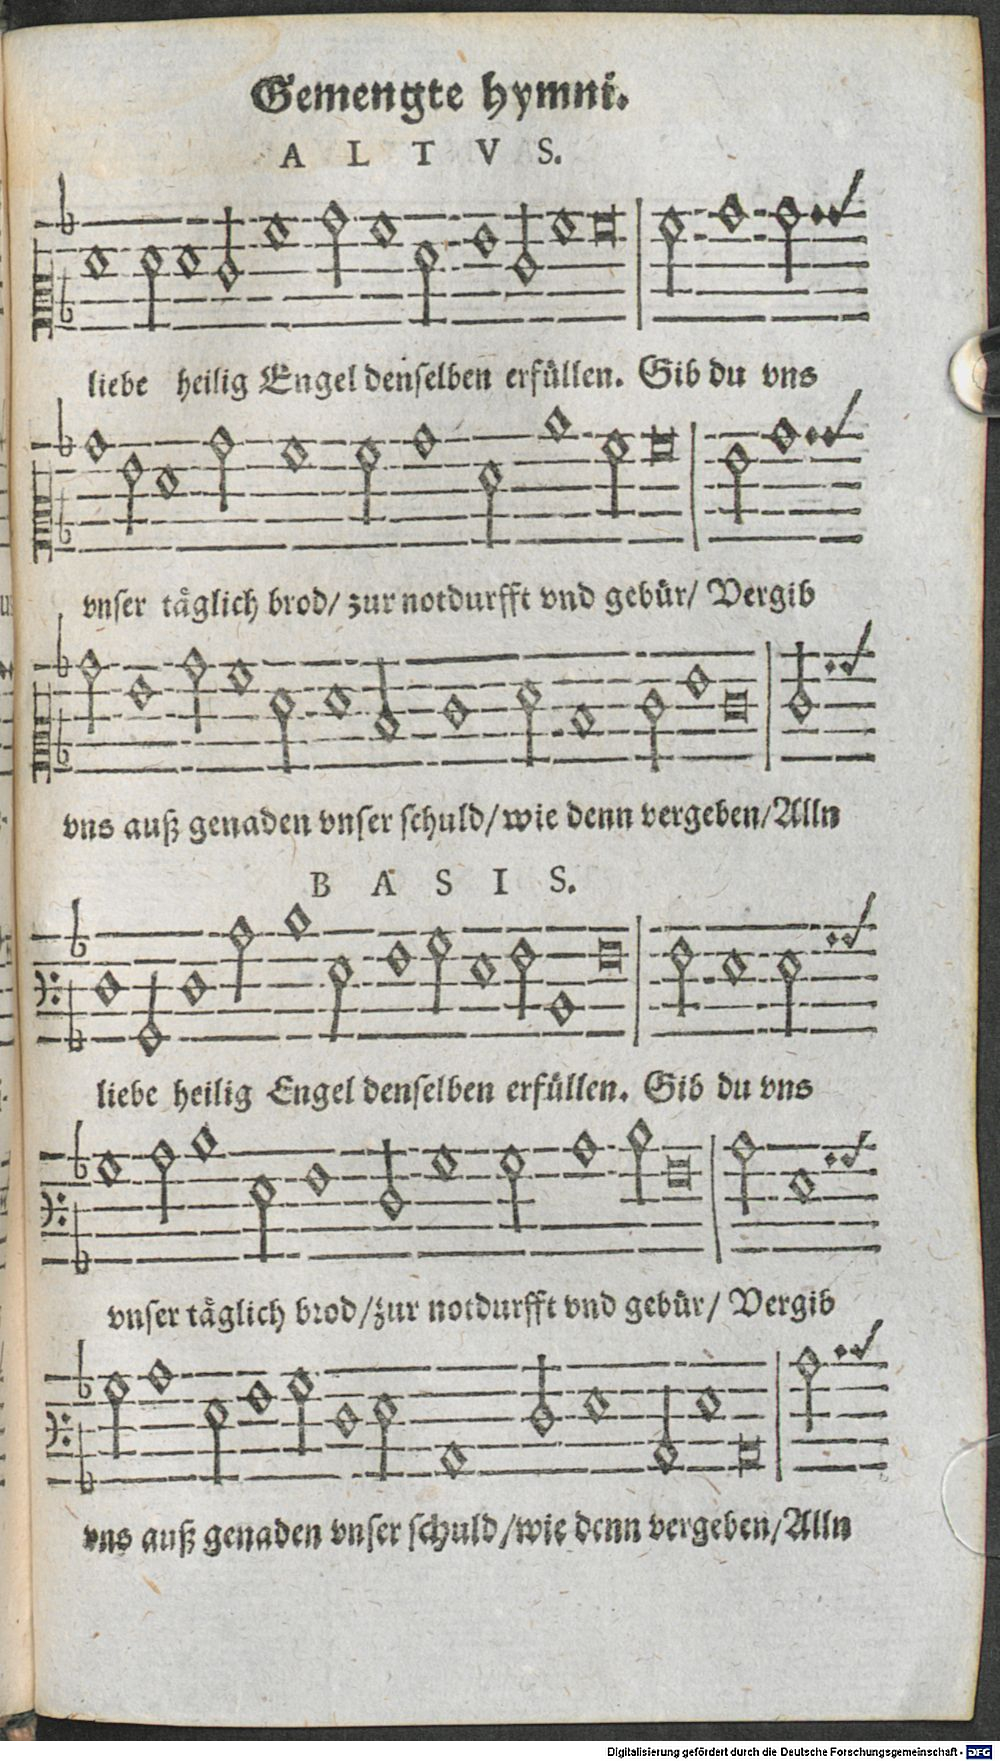 Gemengte hymni.
A L T V S.
liebe heilig Engel denſelben erfüllen. Gib du vns
vnſer täglich brod/ zur notdurfft vnd gebür/ Vergib
vns auß genaden vnſer ſchuld/ wie denn vergeben/ Alln
B A S I S.
liebe heilig Engel denſelben erfüllen. Gib du vns
vnſer täglich brod/ zur notdurfft vnd gebür/ Vergib
vns auß genaden vnſer ſchuld/ wie denn vergeben/ Alln
Digitalisierung gefördert durch die Deutsche Forschungsgemeinschaft - DFG